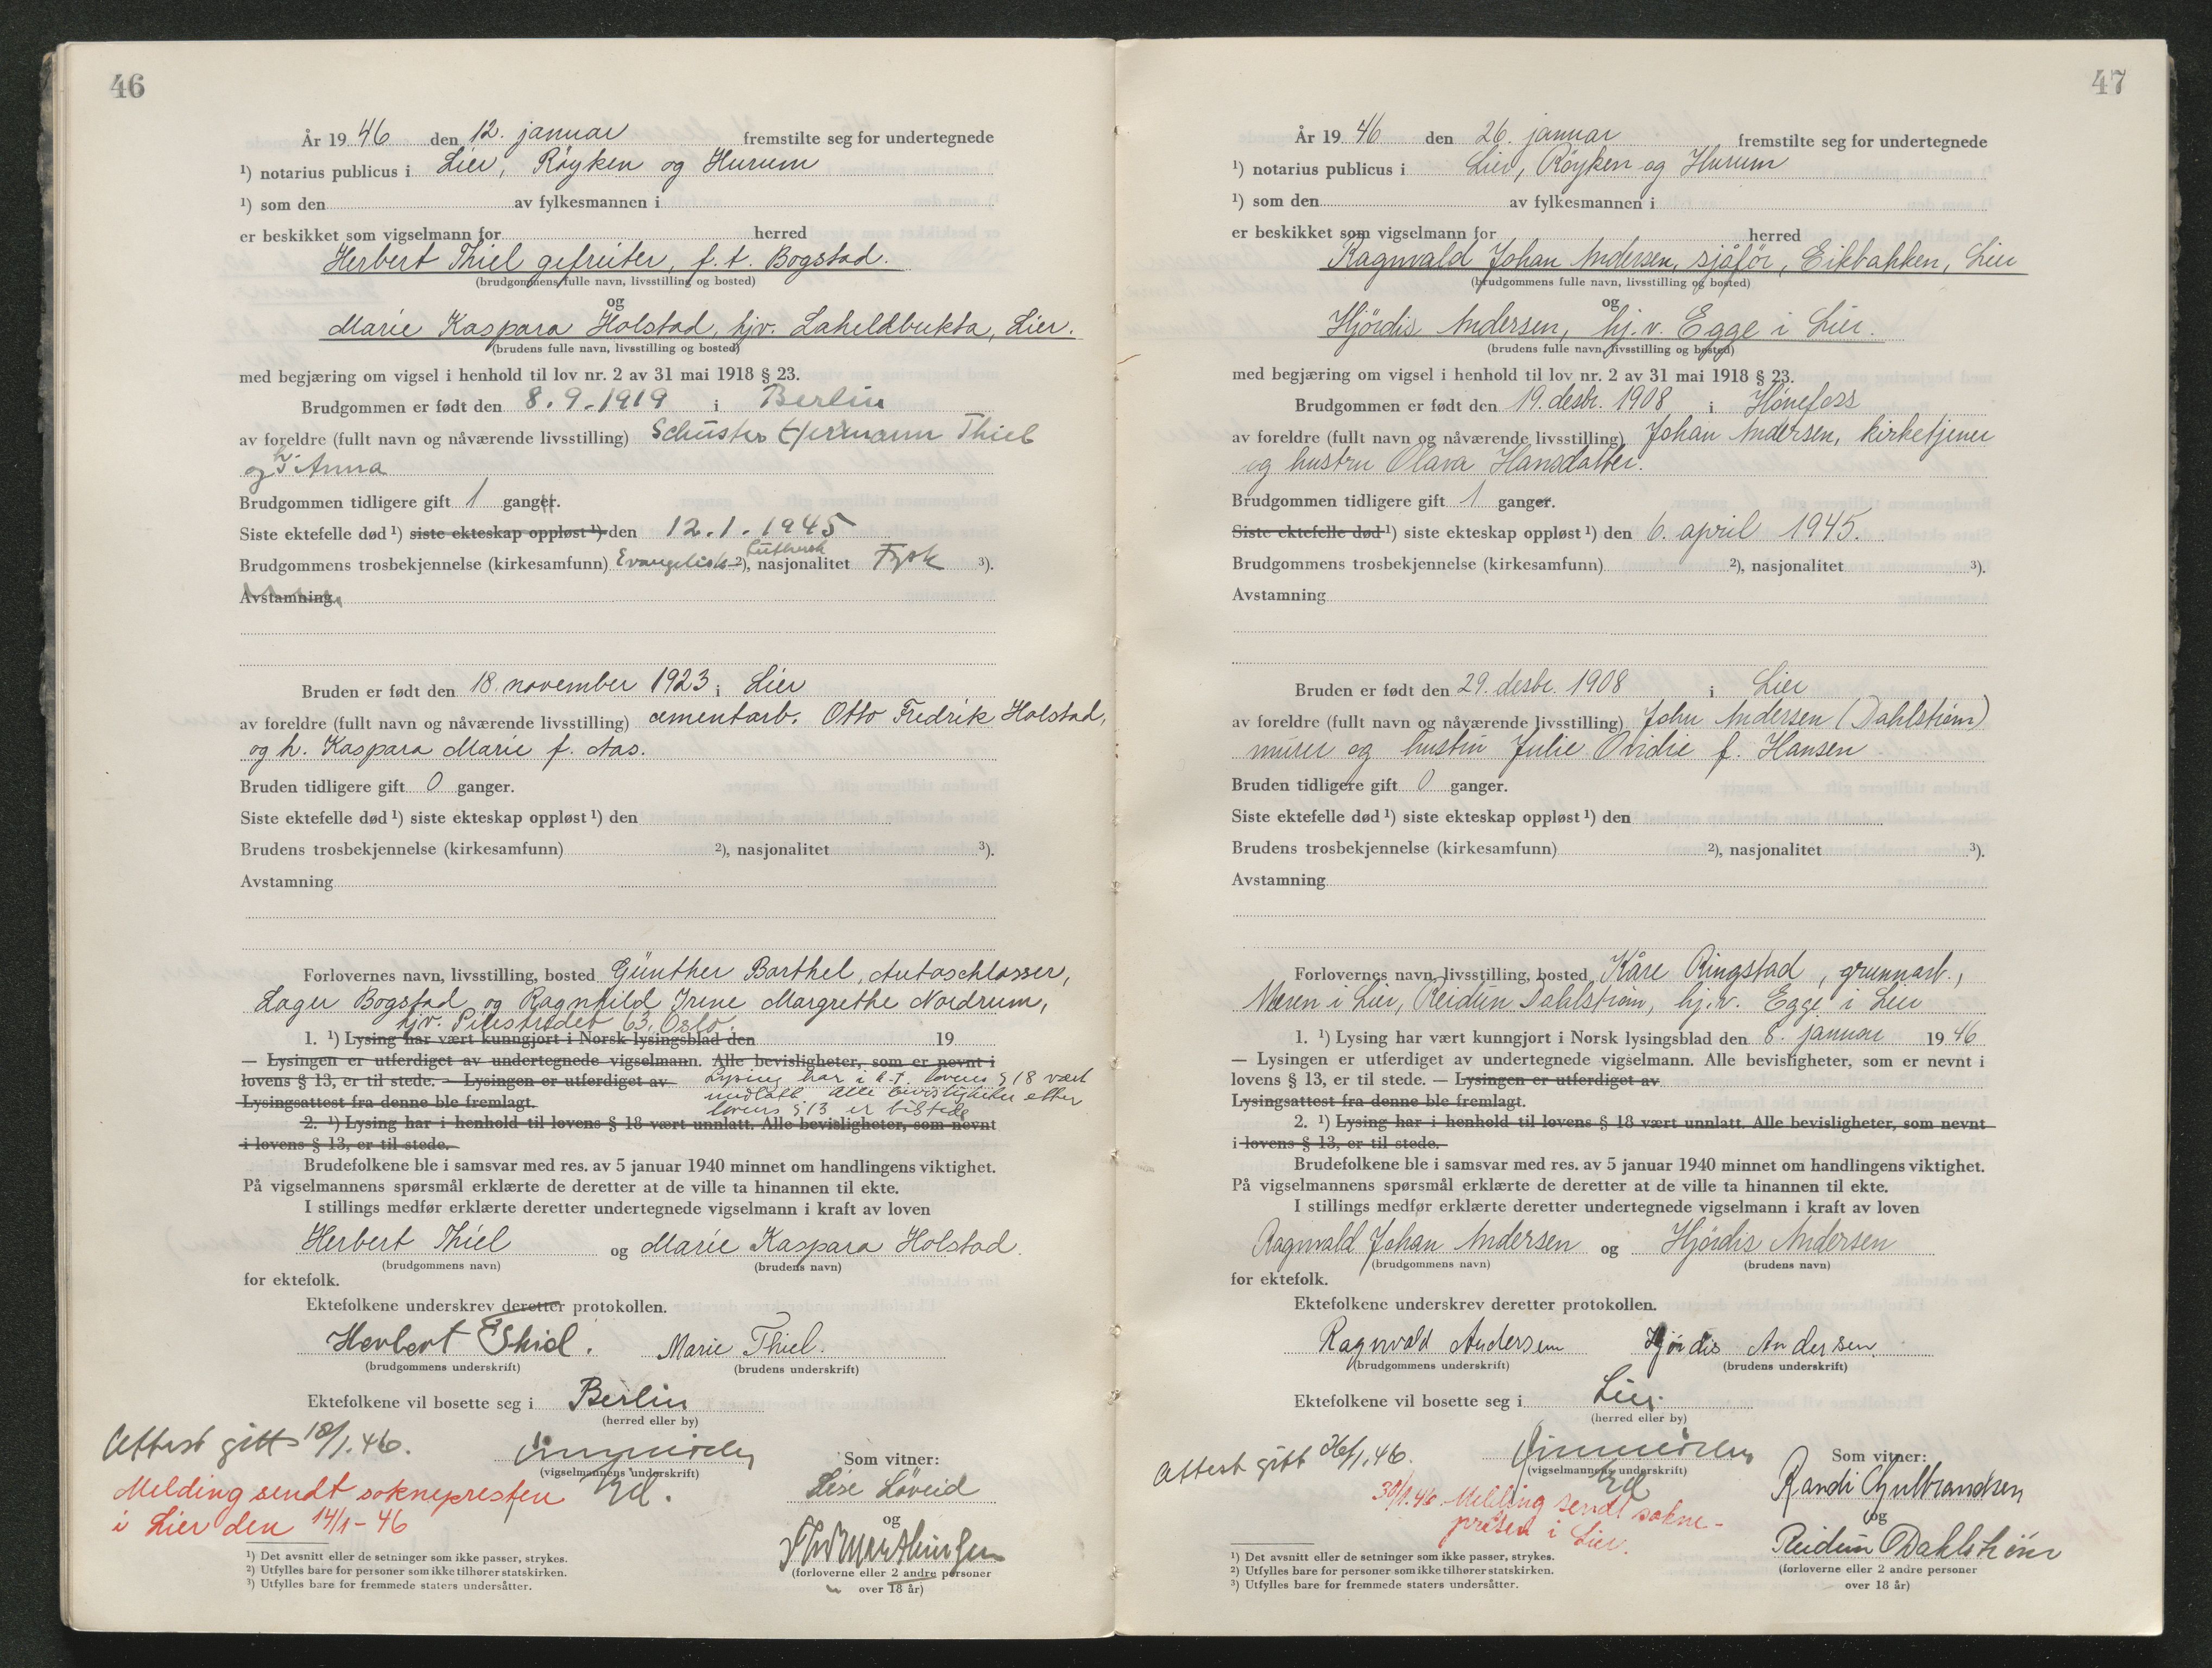 46
År 1946 den 12. januar fremstilte seg for undertegnede
¹) notarius publicus i Lier, Røyken og Hurum
¹) som den av fylkesmannen i
er beskikket som vigselmann for herred
Herbert Thiel gefreiter, f. t. Bogstad.
(brudgommens fulle navn, livsstilling og bosted)
og
Marie Kaspara Holstad, hjv. Laheldbukta, Lier.
(brudens fulle navn, livsstilling og bosted)
med begjæring om vigsel i henhold til lov nr. 2 av 31 mai 1918 § 23.
Brudgommen er født den 8.9.1919 i Berlin
av foreldre (fullt navn og nåværende livsstilling) Schuster Hermann Thiel
og Anna
Brudgommen tidligere gift 1 ganger.
Siste ektefelle død ¹) siste ekteskap oppløst ¹) den 12.1.1945
Brudgommens trosbekjennelse (kirkesamfunn) Evangelisk-Luthersk ²), nasjonalitet Tysk ³).
Avstamning
Bruden er født den 18. november 1923 i Lier
av foreldre (fullt navn og nåværende livsstilling) cementarb. Otto Fredrik Holstad,
og h. Kaspara Marie f. Aas.
Bruden tidligere gift 0 ganger.
Siste ektefelle død ¹) siste ekteskap oppløst ¹) den
Brudens trosbekjennelse (kirkesamfunn) ²), nasjonalitet ³).
Avstamning
Forlovernes navn, livsstilling, bosted Günther Barthel, Autoschlosser,
Lager Bogstad og Ragnhild Irene Margrethe Nordrum,
hjv. Pilestredet 63, Oslo.
1. ¹) Lysing har vært kunngjort i Norsk lysingsblad den 19
— Lysingen er utferdiget av undertegnede vigselmann. Alle bevisligheter, som er nevnt i
lovens § 13, er til stede. — Lysingen er utferdiget av Lysing har i h. t. lovens § 18 vært
Lysingsattest fra denne ble fremlagt. unnlatt. Alle bevisligheter efter
lovens § 13 er tilstede
2. ¹) Lysing har i henhold til lovens § 18 vært unnlatt. Alle bevisligheter, som nevnt
i lovens § 13, er til stede.
Brudefolkene ble i samsvar med res. av 5 januar 1940 minnet om handlingens viktighet.
På vigselmannens spørsmål erklærte de deretter at de ville ta hinannen til ekte.
I stillings medfør erklærte deretter undertegnede vigselmann i kraft av loven
Herbert Thiel og Marie Kaspara Holstad
(brudgommens navn) (brudens navn)
for ektefolk.
Ektefolkene underskrev deretter protokollen.
Herbert Thiel. Marie Thiel.
(brudgommens underskrift) (brudens underskrift)
Ektefolkene vil bosette seg i Berlin
(herred eller by)
Attest gitt 18/1.46.
(vigselmannens underskrift)
Som vitner:
Melding sendt soknepresten
i Lier den 14/1-46
Lise Löveid
og
(forloverne eller 2 andre personer
over 18 år)
¹) Det avsnitt eller de setninger som ikke passer, strykes.
²) Utfylles bare for personer som ikke tilhører statskirken.
³) Utfylles bare for fremmede staters undersåtter.
47
År 1946 den 26. januar fremstilte seg for undertegnede
¹) notarius publicus i Lier, Røyken og Hurum
¹) som den av fylkesmannen i
er beskikket som vigselmann for herred
Ragnvald Johan Andersen, sjåfør, Eikbakken, Lier
(brudgommens fulle navn, livsstilling og bosted)
og
Hjørdis Andersen, hj.v. Egge i Lier.
(brudens fulle navn, livsstilling og bosted)
med begjæring om vigsel i henhold til lov nr. 2 av 31 mai 1918 § 23.
Brudgommen er født den 19. desbr. 1908 i Hønefoss
av foreldre (fullt navn og nåværende livsstilling) Johan Andersen, kirketjener
og hustru Olava Hansdatter.
Brudgommen tidligere gift 1 ganger.
Siste ektefelle død ¹) siste ekteskap oppløst ¹) den 6. april 1945.
Brudgommens trosbekjennelse (kirkesamfunn) ²), nasjonalitet ³).
Avstamning
Bruden er født den 29. desbr. 1908 i Lier
av foreldre (fullt navn og nåværende livsstilling) John Andersen (Dahlstrøm)
murer og hustru Julie Ovidie f. Hansen
Bruden tidligere gift 0 ganger.
Siste ektefelle død ¹) siste ekteskap oppløst ¹) den
Brudens trosbekjennelse (kirkesamfunn) ²), nasjonalitet ³).
Avstamning
Forlovernes navn, livsstilling, bosted Kåre Ringstad, grunnarb.,
Meren i Lier, Reidun Dahlstrøm, hj.v. Egge i Lier
1. ¹) Lysing har vært kunngjort i Norsk lysingsblad den 8. januar 1946
— Lysingen er utferdiget av undertegnede vigselmann. Alle bevisligheter, som er nevnt i
lovens § 13, er til stede. — Lysingen er utferdiget av
Lysingsattest fra denne ble fremlagt.
2. ¹) Lysing har i henhold til lovens § 18 vært unnlatt. Alle bevisligheter, som nevnt
i lovens § 13, er til stede.
Brudefolkene ble i samsvar med res. av 5 januar 1940 minnet om handlingens viktighet.
På vigselmannens spørsmål erklærte de deretter at de ville ta hinannen til ekte.
I stillings medfør erklærte deretter undertegnede vigselmann i kraft av loven
Ragnvald Johan Andersen og Hjørdis Andersen
(brudgommens navn) (brudens navn)
for ektefolk.
Ektefolkene underskrev deretter protokollen.
Ragnvald Andersen Hjørdis Andersen
(brudgommens underskrift) (brudens underskrift)
Ektefolkene vil bosette seg i Lier.
(herred eller by)
Attest gitt 26/1.46.
(vigselmannens underskrift)
Som vitner:
30/1.46. Melding sendt sokne-
presten i Lier.
Randi Gulbrandsen
og
Reidun Dahlstrøm
(forloverne eller 2 andre personer
over 18 år)
¹) Det avsnitt eller de setninger som ikke passer, strykes.
²) Utfylles bare for personer som ikke tilhører statskirken.
³) Utfylles bare for fremmede staters undersåtter.